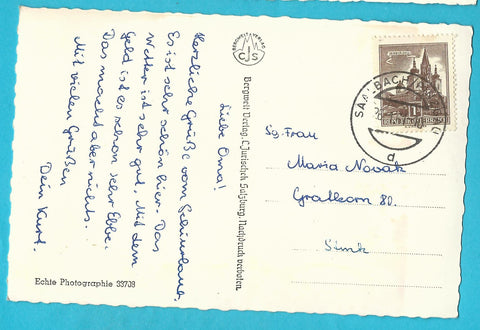 Liebe Oma!
Herzliche Grüße vom Schiurlaub.
Es ist sehr schön hier. Das
Wetter ist sehr gut. Mit dem
Geld ist es schon sehr Ebbe.
Das macht aber nichts.
Mit vielen Grüßen
Dein Kurt.
Echte Photographie 33708
BERGWELT VERLAG
CJS
Bergwelt Verlag, C. Jurischek Salzburg. Nachdruck verboten.
SAALBACH
d
Sg. Frau
Maria Novak
Gratkorn 80.
Stmk